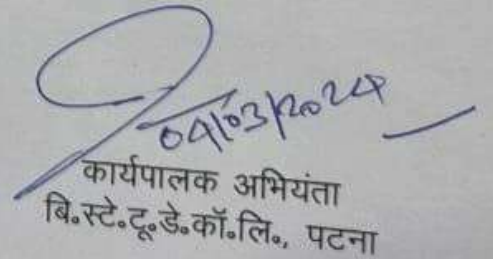 04/03/2024
कार्यपालक अभियंता
बि॰स्टे॰टू॰डे॰कॉ॰लि॰, पटना